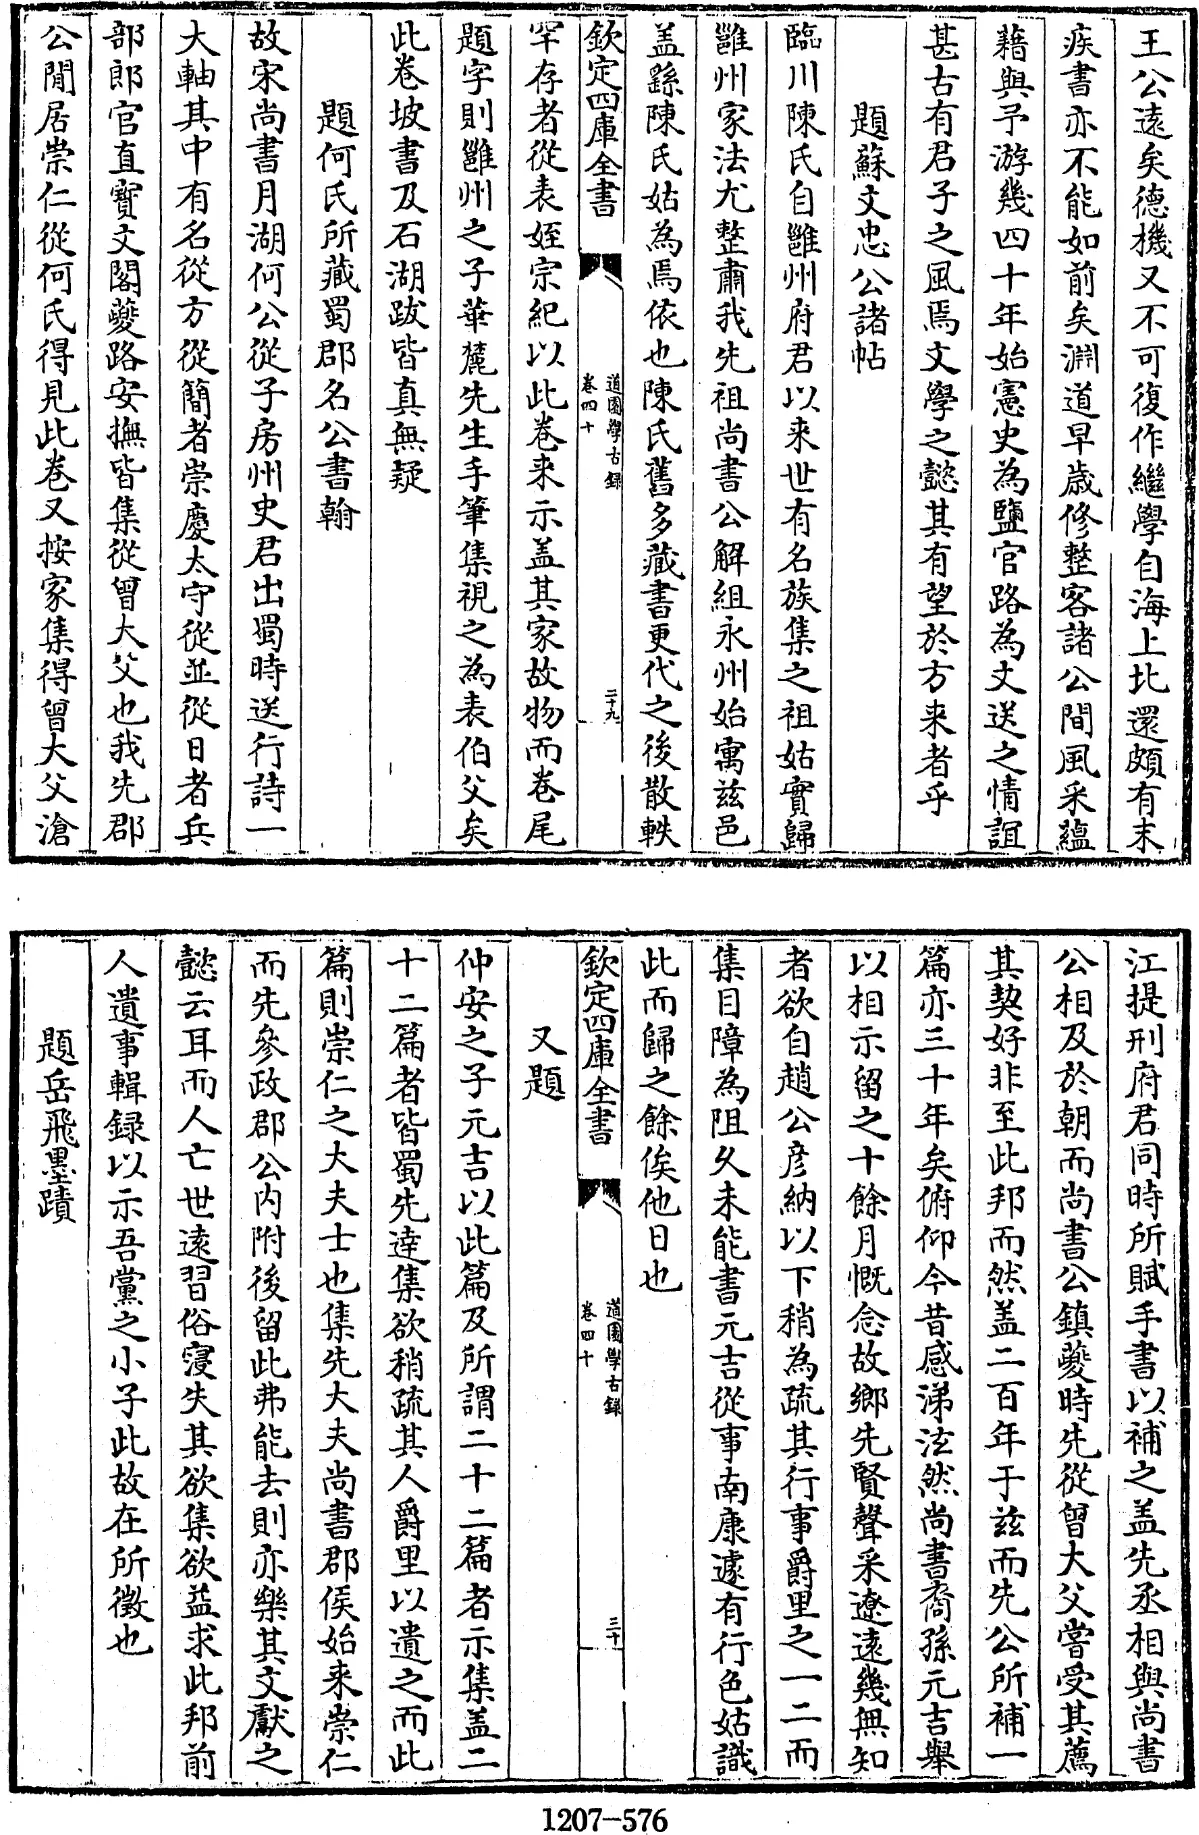 王公遠矣德機又不可復作繼學自海上北還頗有末
疾書亦不能如前矣淵道早歳修整客諸公間風采蘊
藉與予游幾四十年始憲史為鹽官路為文送之情誼
甚古有君子之風焉文學之懿其有望於方来者乎
題蘇文忠公諸帖
臨川陳氏自邕州府君以来世有名族集之祖姑實歸
邕州家法尤整肅我先祖尚書公解組永州始寓兹邑
盖繇陳氏姑為焉依也陳氏舊多藏書更代之後散軼
欽定四庫全書
道園學古録
卷四十
二十九
罕存者從表姪宗紀以此卷来示盖其家故物而卷尾
題字則邕州之子華麓先生手筆集視之為表伯父矣
此卷坡書及石湖跋皆真無疑
題何氏所藏蜀郡名公書翰
故宋尚書月湖何公從子房州史君出蜀時送行詩一
大軸其中有名從方從簡者崇慶太守從並從日者兵
部郎官直寶文閣夔路安撫皆集從曾大父也我先郡
公閒居崇仁從何氏得見此卷又按家集得曾大父滄
江提刑府君同時所賦手書以補之盖先丞相與尚書
公相及於朝而尚書公鎮夔時先從曾大父嘗受其薦
其契好非至此邦而然盖二百年于兹而先公所補一
篇亦三十年矣俯仰今昔感涕泫然尚書裔孫元吉舉
以相示留之十餘月慨念故鄉先賢聲采遼遠幾無知
者欲自趙公彦納以下稍為疏其行事爵里之一二而
集目障為阻久未能書元吉從事南康遽有行色姑識
此而歸之餘俟他日也
欽定四庫全書
道園學古録
卷四十
三十
又題
仲安之子元吉以此篇及所謂二十二篇者示集盖二
十二篇者皆蜀先達集欲稍疏其人爵里以遺之而此
篇則崇仁之大夫士也集先大夫尚書郡侯始来崇仁
而先參政郡公内附後留此弗能去則亦樂其文獻之
懿云耳而人亡世逺習俗寖失其欲集欲益求此邦前
人遺事輯録以示吾黨之小子此故在所徵也
題岳飛墨蹟
1207-576